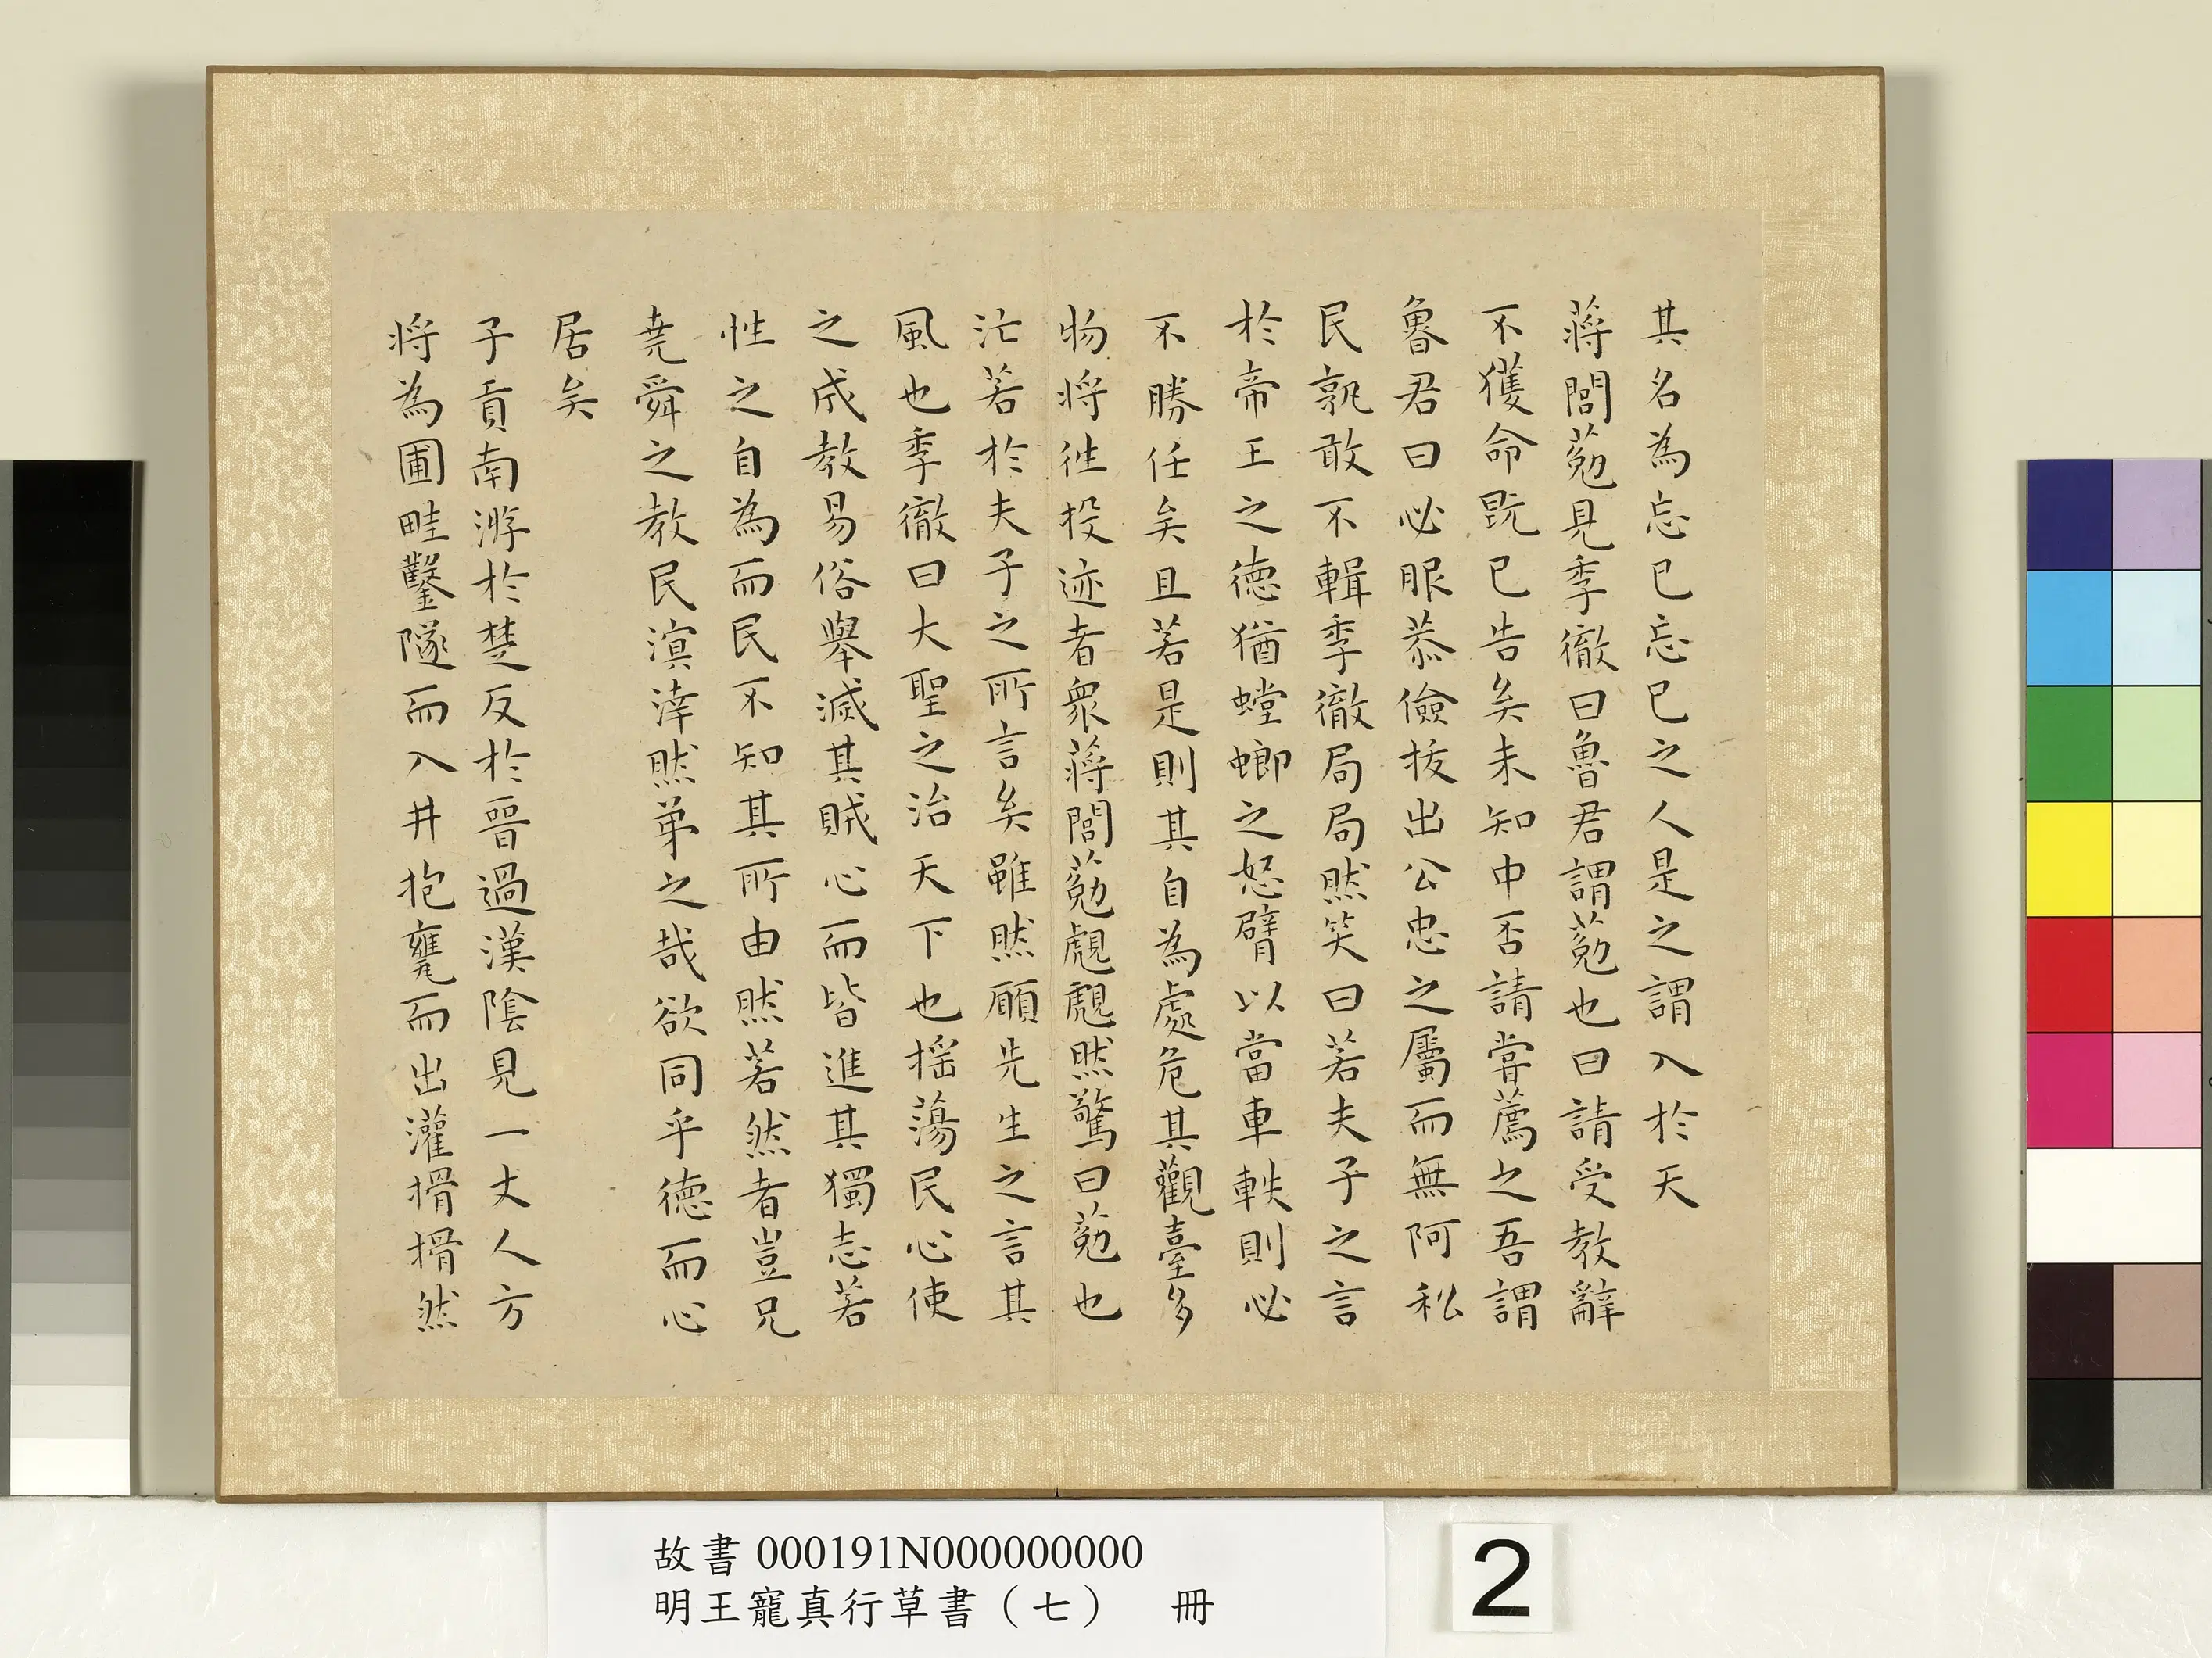 其名為忘已忘已之人是之謂入於天
蔣閭葂見季徹曰魯君謂葂也曰請受教辭
不獲命既已告矣未知中否請嘗薦之吾謂
魯君曰必服恭儉拔出公忠之屬而無阿私
民孰敢不輯季徹局局然笑曰若夫子之言
於帝王之德猶螳螂之怒臂以當車軼則必
不勝任矣且若是則其自為處危其觀臺多
物將往投迹者衆蔣閭葂覤覤然驚曰葂也
汒若於夫子之所言矣雖然願先生之言其
風也季徹曰大聖之治天下也摇蕩民心使
之成教易俗舉滅其賊心而皆進其獨志若
性之自為而民不知其所由然若然者豈兄
堯舜之教民溟涬然弟之哉欲同乎德而心
居矣
子貢南游於楚反於晉過漢陰見一丈人方
將為圃畦鑿隧而入井抱甕而出灌搰搰然
故書 000191N000000000
明王寵真行草書（七） 冊
2